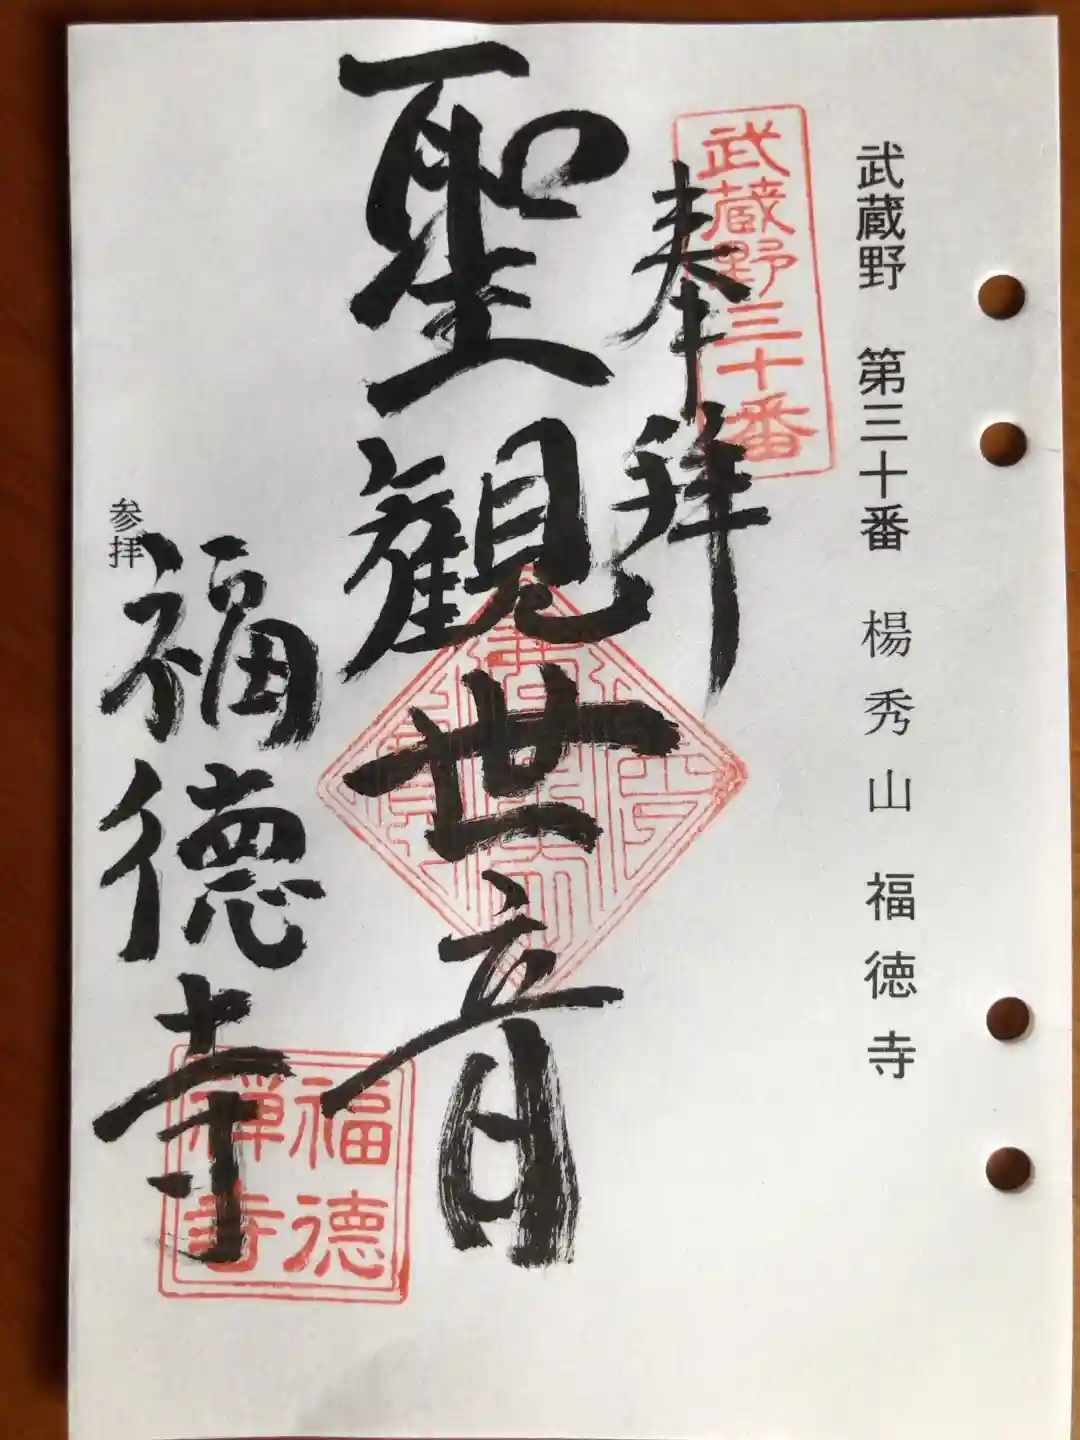 武蔵野　第三十番　楊秀山　福徳寺
武蔵野三十番
奉拝
聖観世音
参拝
福徳寺
福徳
禅寺